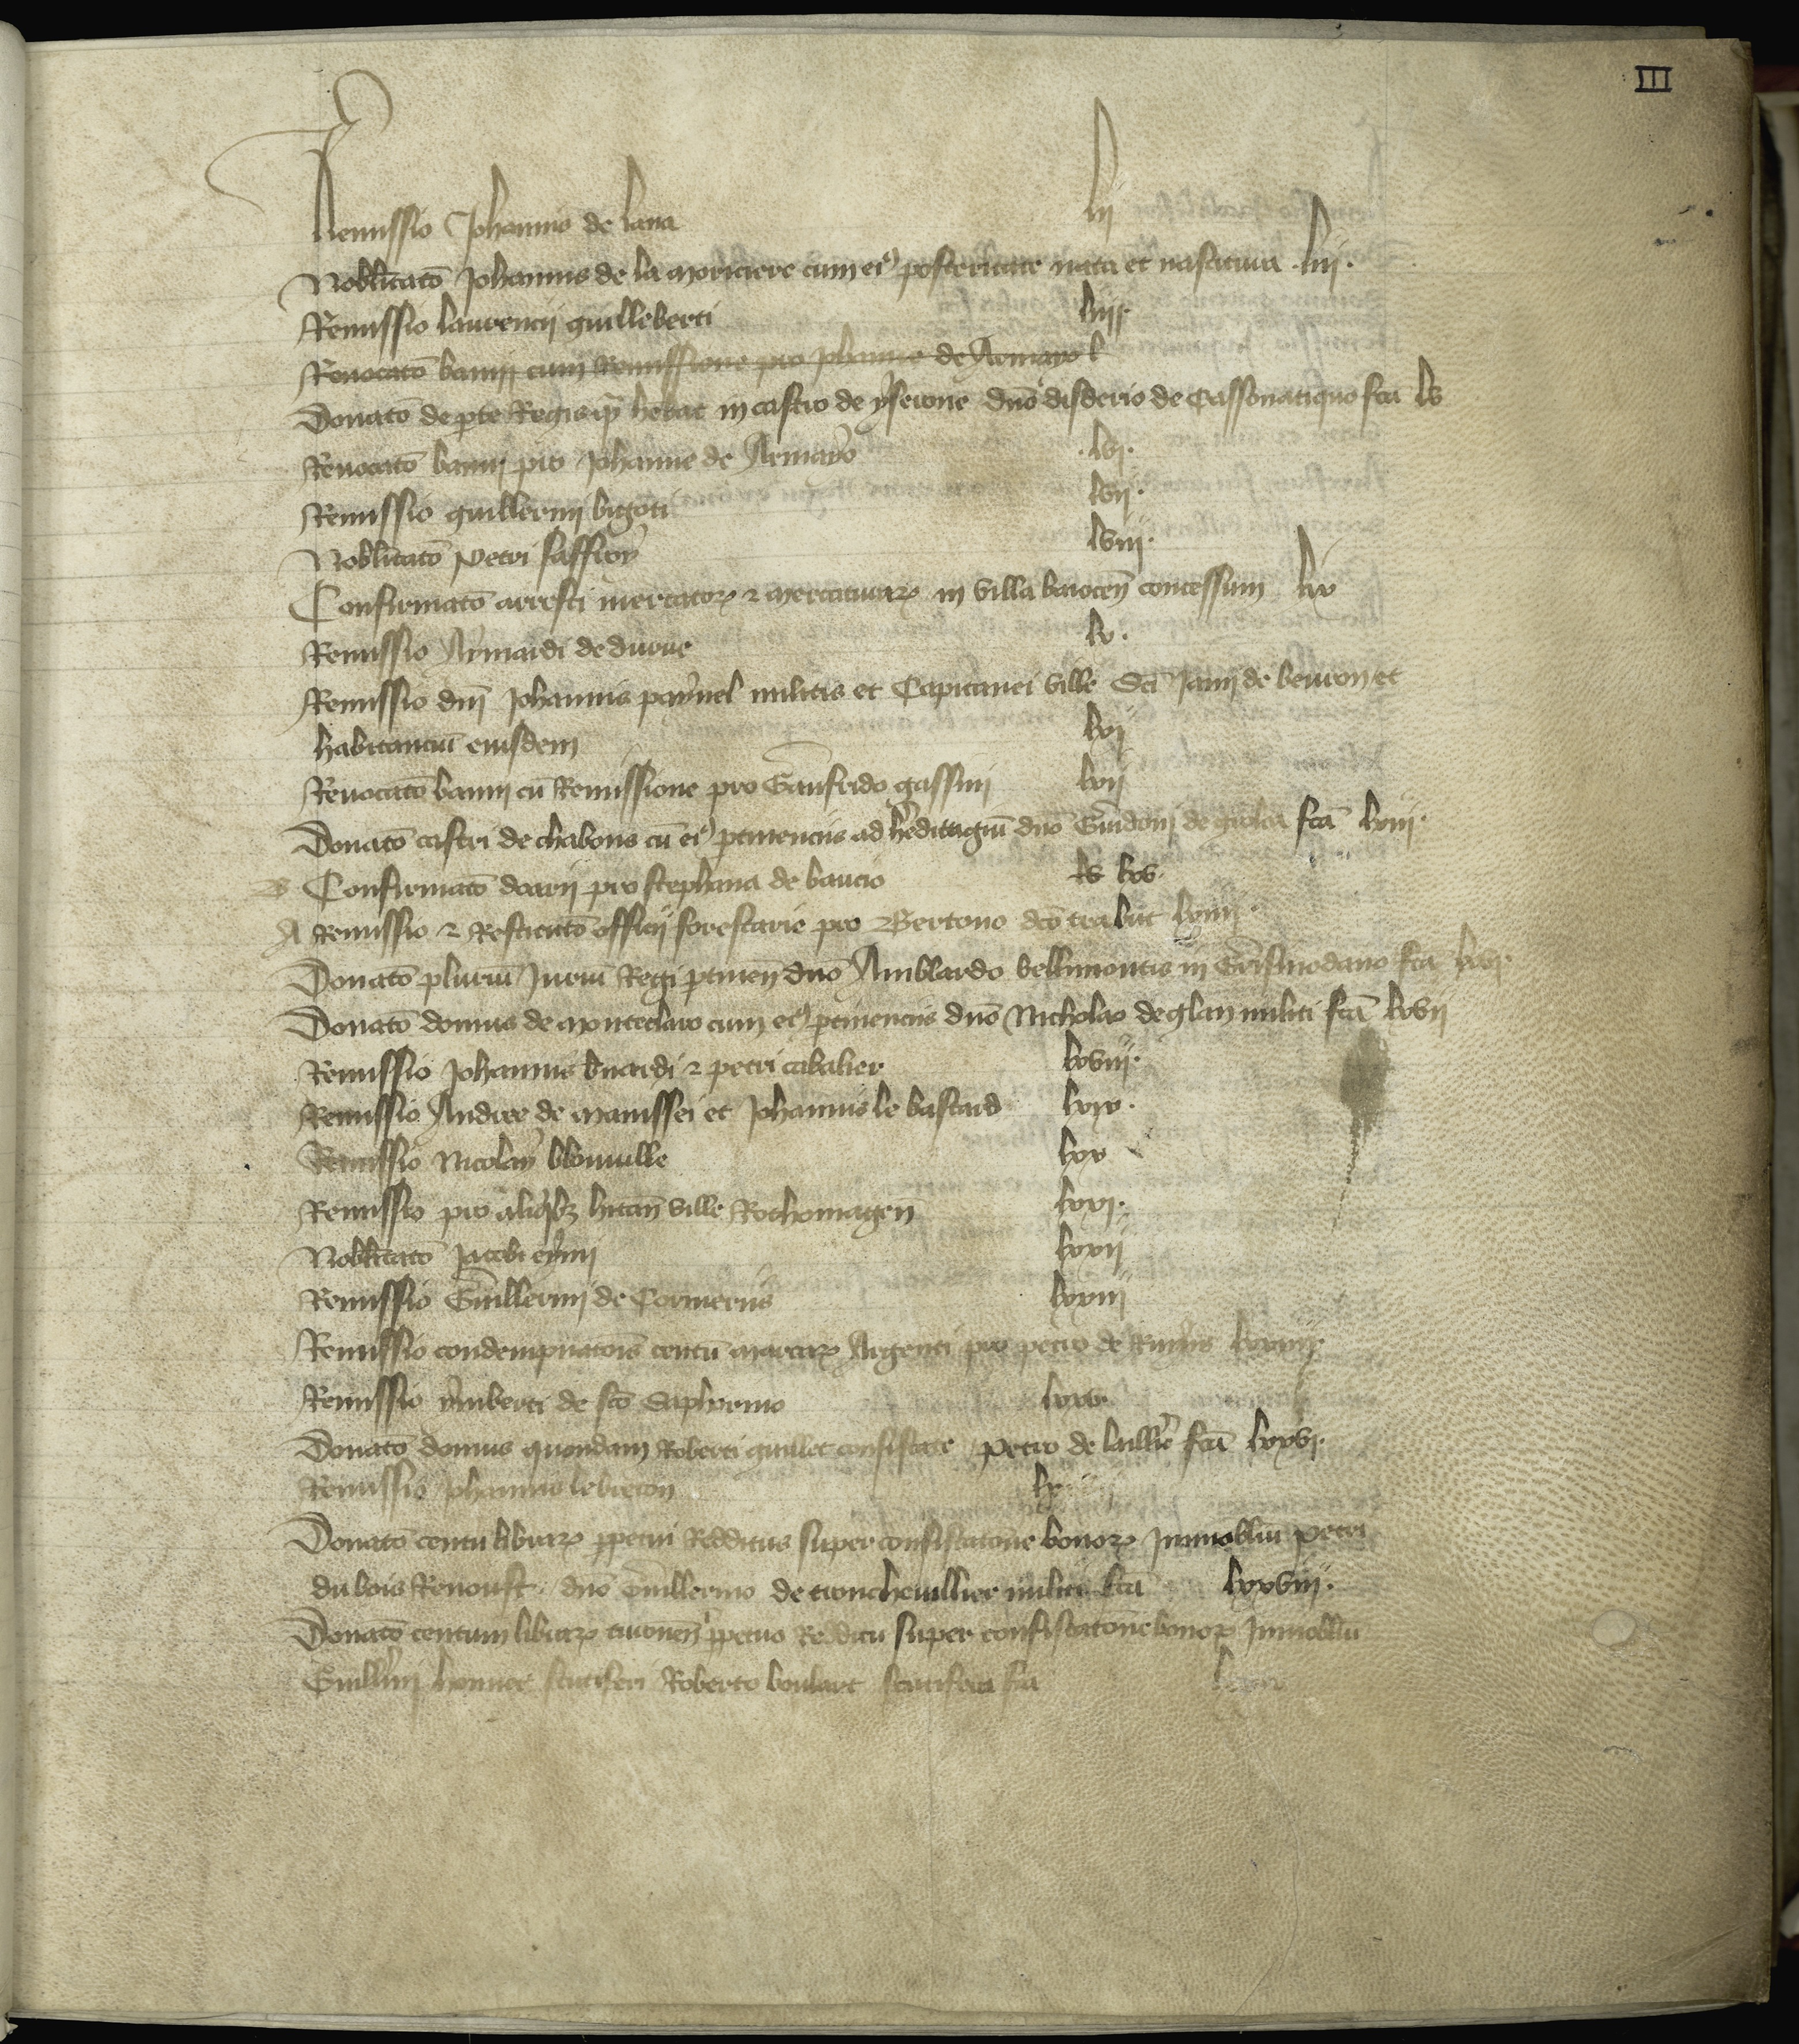 III
Remissio Johannis de lana lii
Nobilitatō Johannis de la moriciere cum ei9 posteritate nata et nascitura .liii.
Remissio laurencii guilleberti liiii.
Revocatō banni cum Remissione pro Johanne de Armayo l
Donatō de pte Regis in castro de yserone dnō disderio de Cassenatiquo fcā lv
Revocatō banni pro Johanne de Armayo .lvi.
Remissio guillermi bigoti lvii.
Nobilitatō Petri lviii.
Confirmatō arresti mercatorꝝ ⁊ mercaturarꝝ in villa baiocen̄ concessum lix
Remissio Aymardi de lx.
Remissio dnī Johannis paynel militis et Capitanei ville Sc̄i Jam̄ de beuron et
habitanciū eiusdem lxi
Revocatō banni cū Remissione pro Gaufrido gassini lxii
Donatō castri de chabons cū ei9 ptinenciis ad hereditagiū dnō Guidoni de fcā lxiii.
B Confirmatō pro stephana de baucio lv lxv.
A Remissio ⁊ Restitutō officii forestarie pro Bertono dcō lxiiii.
Donatō pluriū Juriū Regi ptinen̄ dnō Amblardo bellimontis in Graisivodano fcā lxvi.
Donatō domus de monteclaro cum ei9 ptinenciis dnō Nicholao de glan militi fcā lxvii
Remissio Johannis ⁊ petri cabalier lxviii.
Remissio Andree de manissei et Johannis le bastard lxix.
Remissio Nicolay lxx
Remissio pro aliqbꝫ hitan̄ ville Rothomagen̄ lxxi.
Nobilitatō Jacobi eymii lxxii
Remissio Guillermi de Cormeriis lxxiii
Remissio condempnatōis centū marcarꝝ Argenti pro petro de lxxiiii.
Remissio ymberti de scō Saphorino lxxv.
Donatō domus quondam Roberti guillet confiscate Petro de fcā lxxvi.
Remissio Johannis le breton lx
Donatō centū librarꝝ ppetui Redditus super confiscatōne bonorꝝ Immobiliū Petri
du bois Renouft. dnō Guillermo de troncheuillier militi fcā lxxviii.
Donatō centum librarꝝ turonen̄ ppetuo Redditu super confiscatōne bonorꝝ Immobiliū
Guillmi scutiferi Roberto boulart scutifero fcā